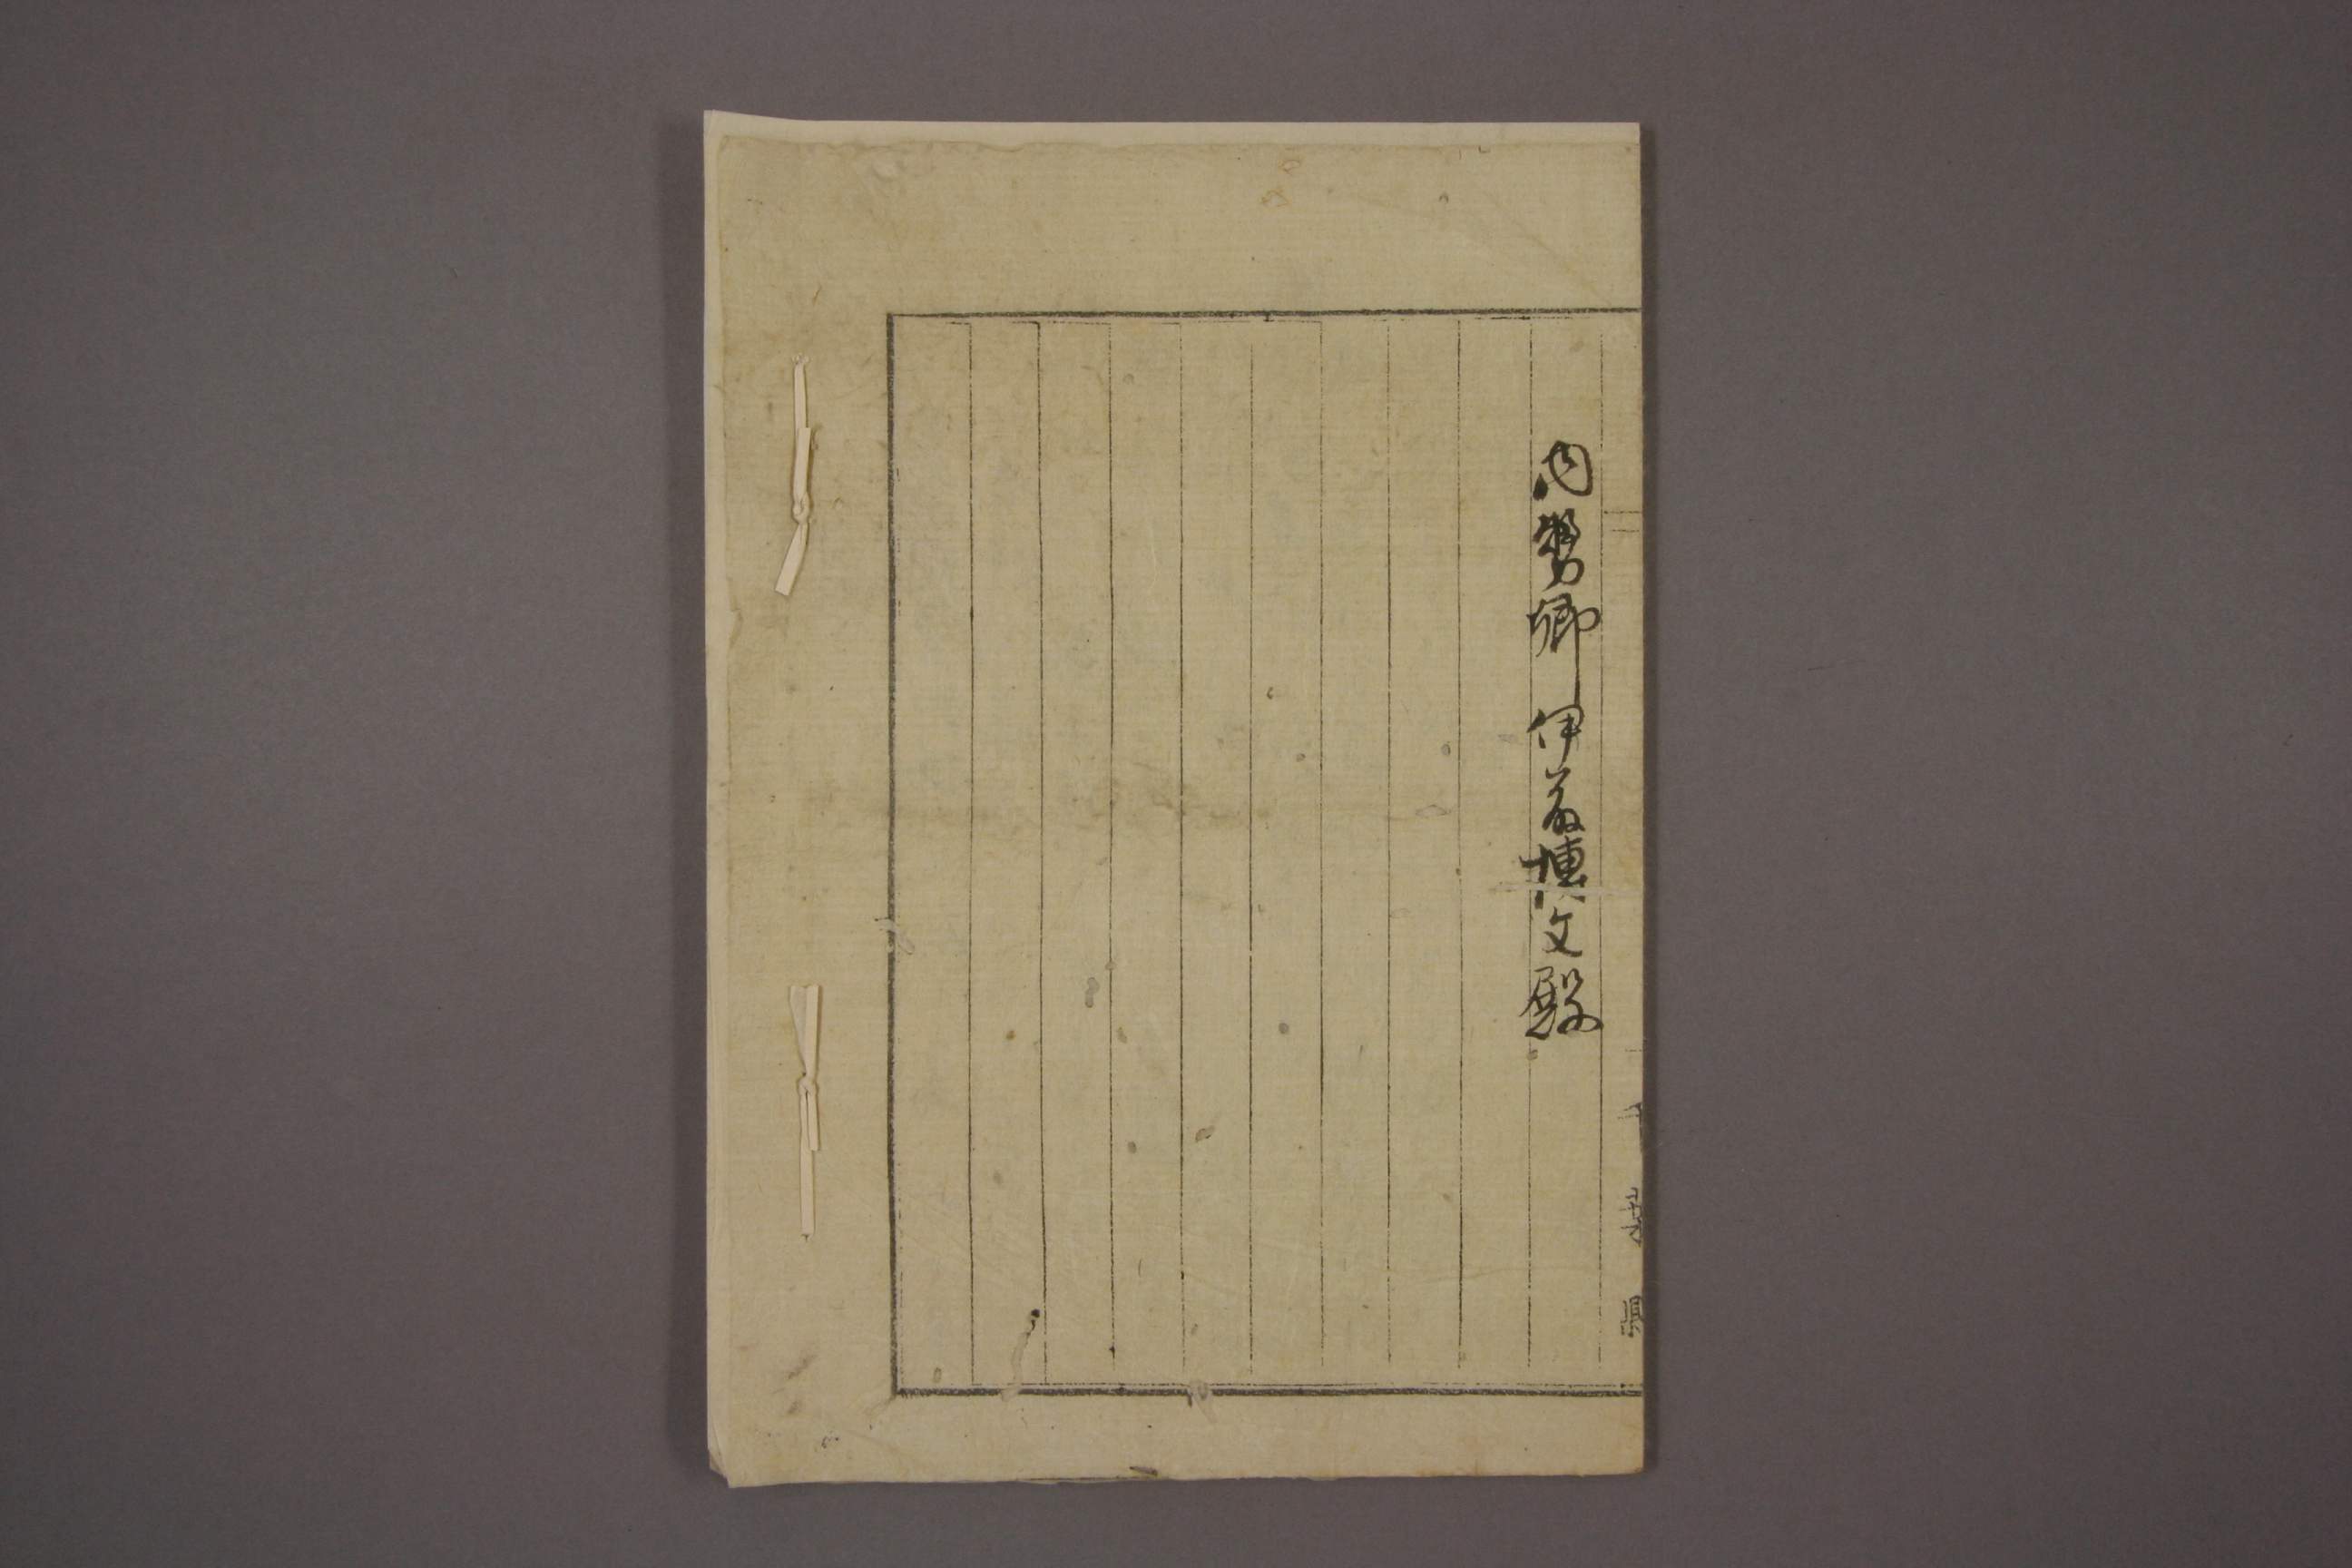 内務卿 伊藤博文殿
千葉縣